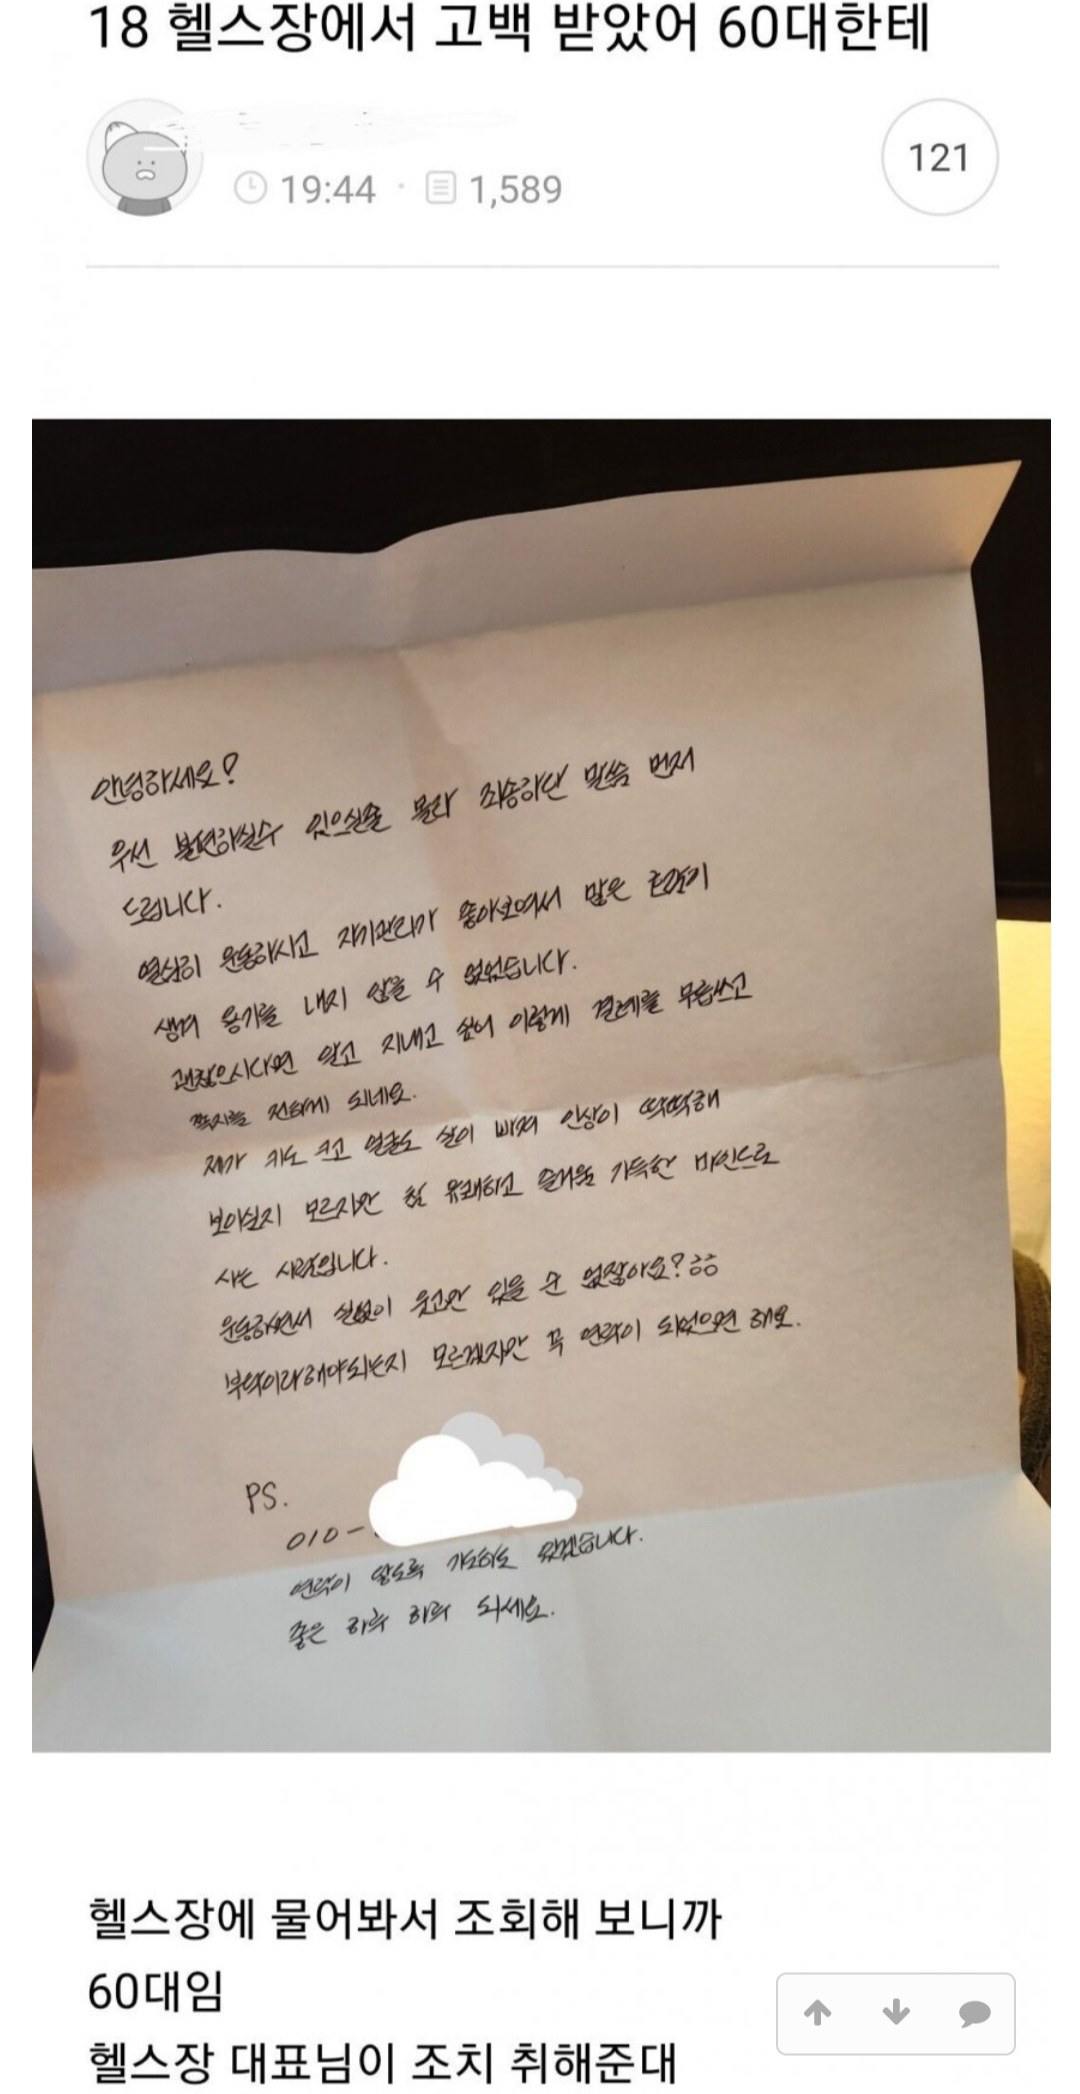 18 헬스장에서 고백 받았어 60대한테
19:44 · 1,589
121
안녕하세요?
우선 불편하실수 있으실줄 몰라 죄송하단 말씀 먼저
드립니다.
열심히 운동하시고 자기관리가 좋아보여서 많은 호감이
생겨 용기를 내지 않을 수 없었습니다.
괜찮으시다면 알고 지내고 싶어 이렇게 결례를 무릅쓰고
쪽지를 전하게 되네요.
제가 키도 크고 얼굴도 살이 빠져 인상이 딱딱해
보이실지 모르지만 참 유쾌하고 즐거움 가득한 마인드로
사는 사람입니다.
운동하면서 실없이 웃고만 있을 순 없잖아요?
부탁이라해야되는지 모르겠지만 꼭 연락이 되었으면 해요.
PS.
010-
연락이 알도록 기도하도 있겠습니다.
좋은 하루 하루 되세요.
헬스장에 물어봐서 조회해 보니까
60대임
헬스장 대표님이 조치 취해준대